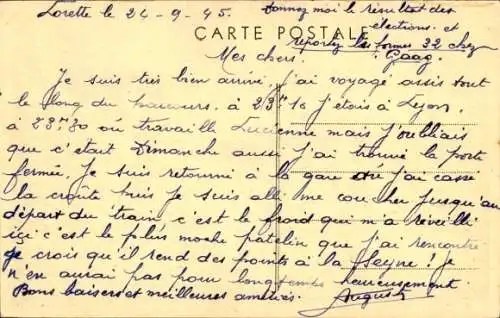 Lorette le 24-9-45.
Donnez moi le résultat des
élections. et
CARTE POSTALE
reportez les formes 32 chez
Gaag.
Mes chers.
Je suis très bien arrivé. j'ai voyagé assis tout
le long du parcours. à 23h16 j'étais à Lyon.
à 23h30 où travaille Lucienne mais j'oubliais
que c'était Dimanche aussi j'ai trouvé la porte
fermée. Je suis retourné à la gare où j'ai cassé
la croûte puis je suis allé me coucher jusqu'au
départ du train c'est le froid qui m'a réveillé
içi c'est le plus moche patelin que j'ai rencontré
je crois qu'il rend des points à la Seyne! Je
n'en aurai pas pour longtemps heureusement.
Bons baisers et meilleures amitiés. August